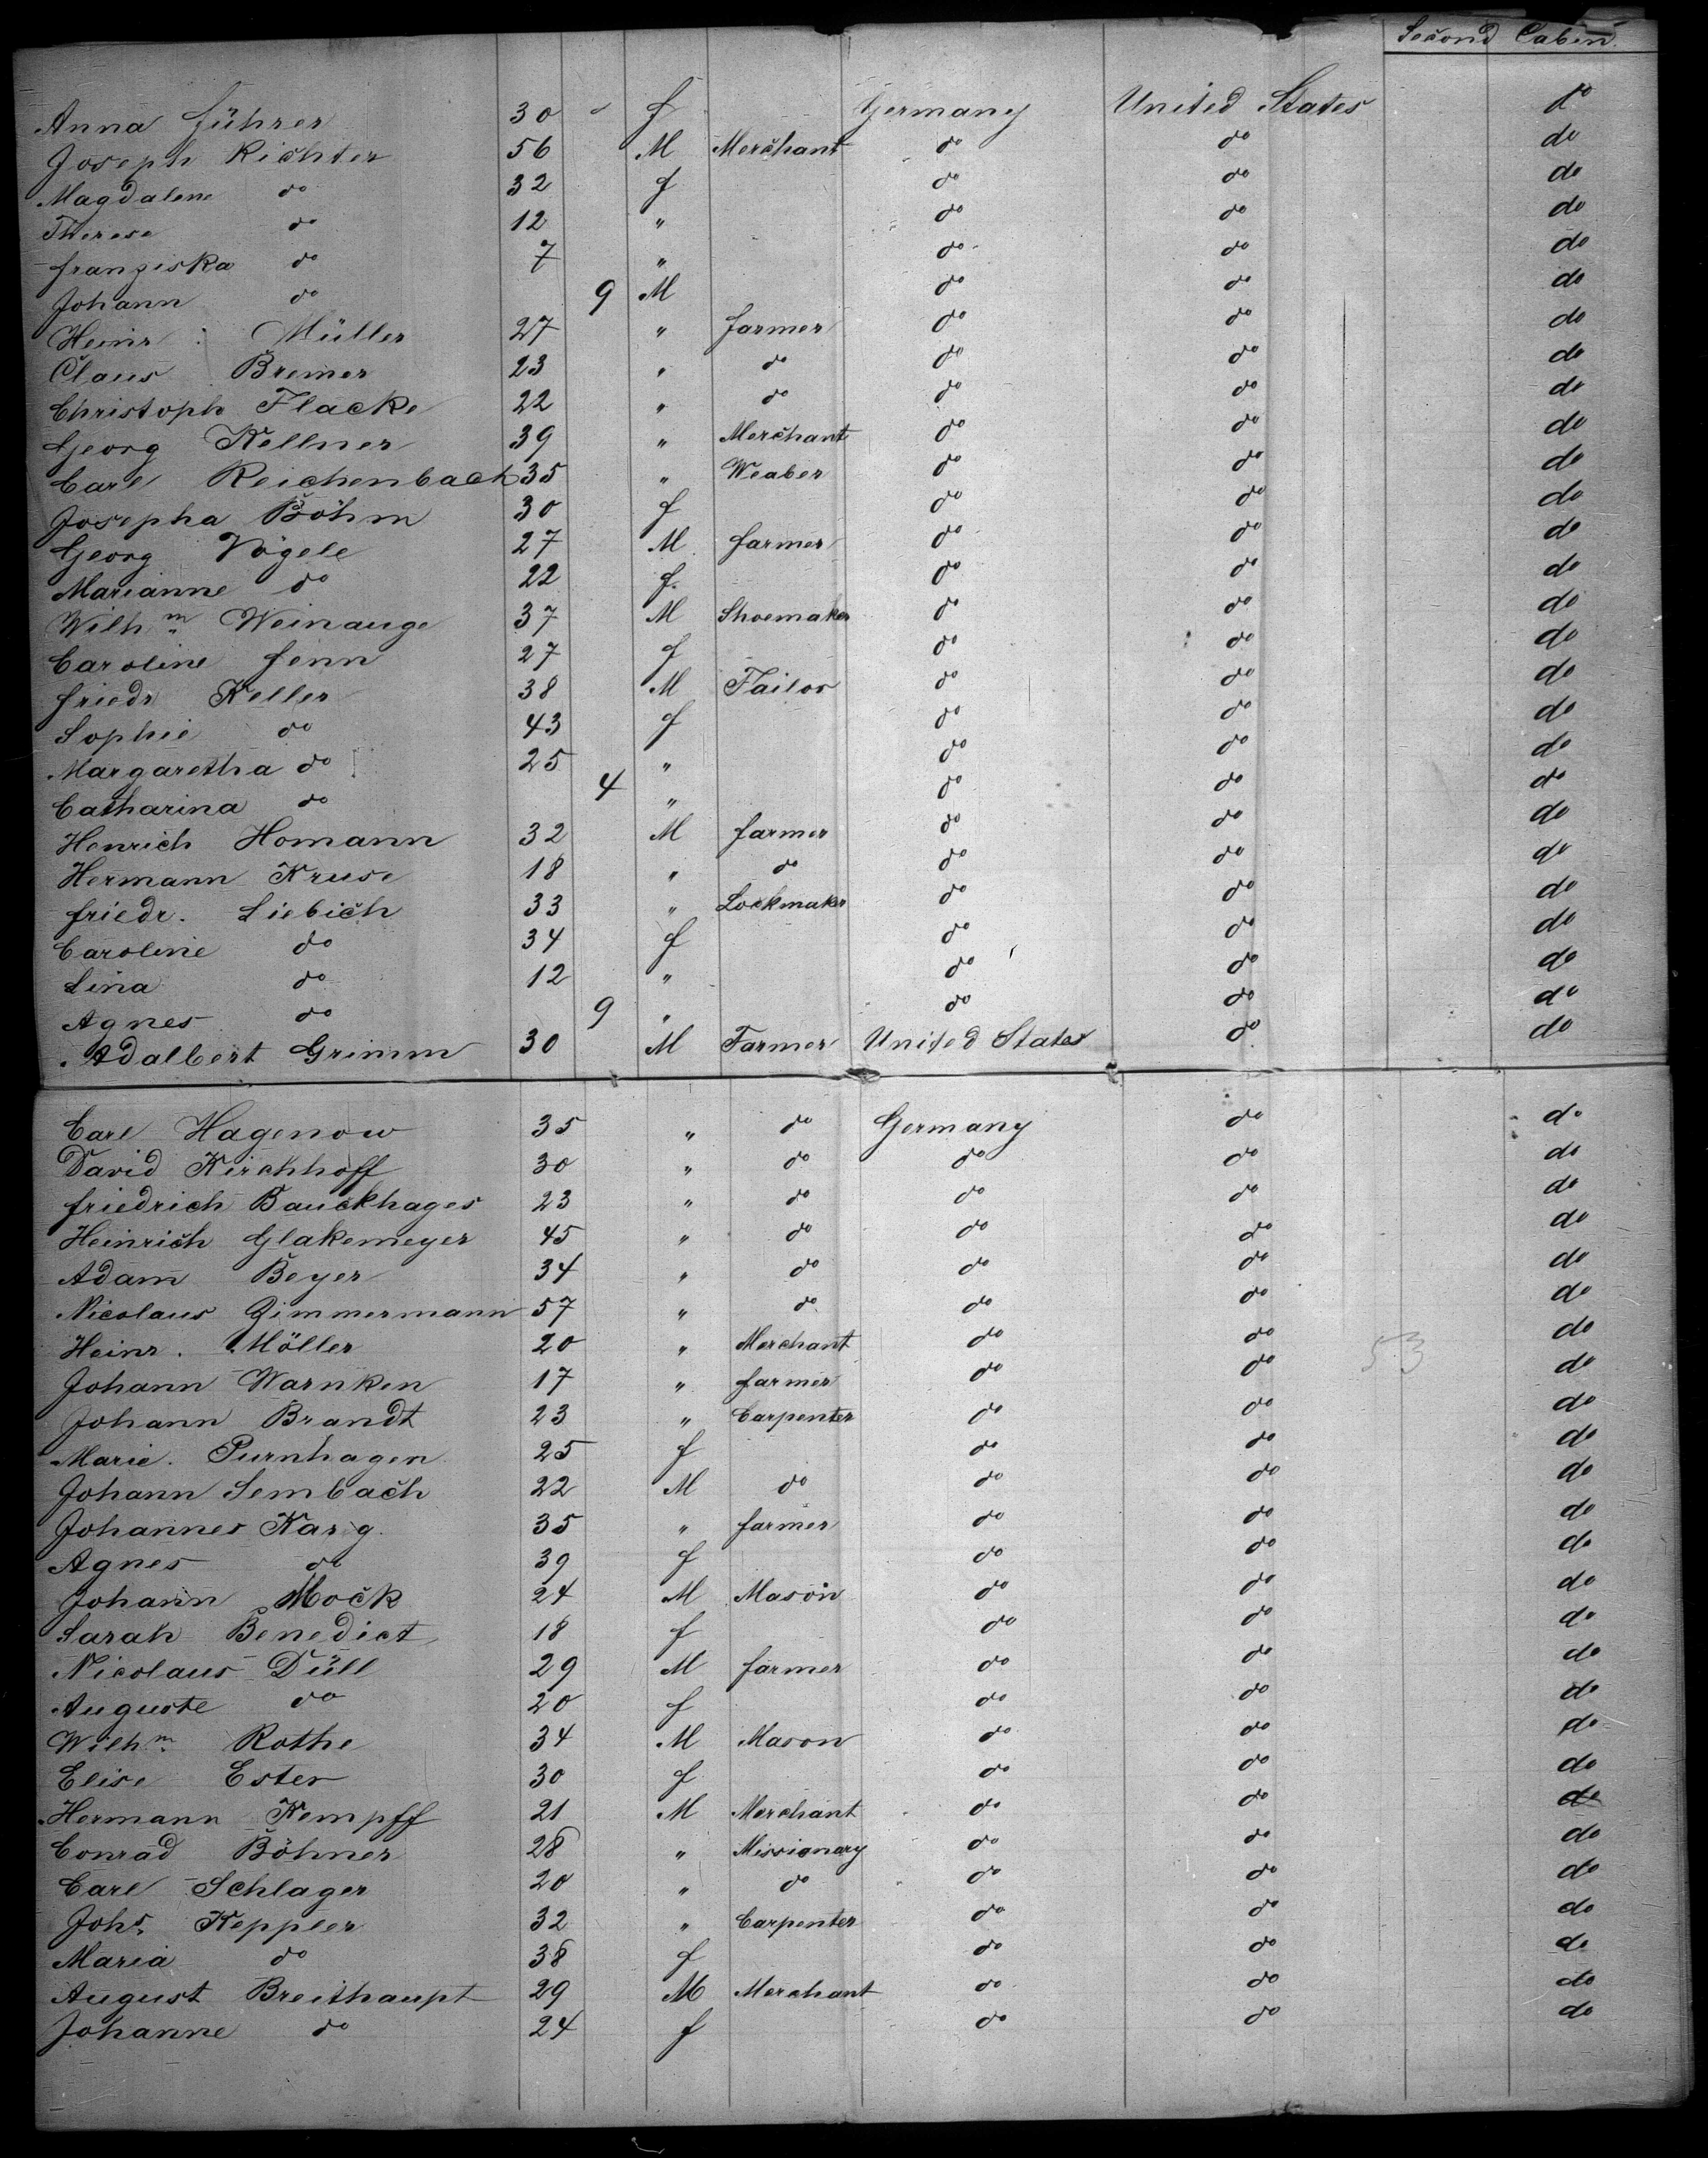 Second Cabin
Anna Führer 30 " f Germany United States do
Joseph Richter 56 M Merchant do do do
Magdalene do 32 f do do do
Therese do 12 " do do do
franziska do 7 " do do do
Johann do 9 M do do do
Heinr : Müller 27 " farmer do do do
Claus Bremer 23 " do do do do
Christoph Flacke 22 " do do do do
Georg Kellner 39 " Merchant do do do
Carl Reichenbach 35 " Weaber do do do
Josepha Böhm 30 f do do do
Georg Vögele 27 M farmer do do do
Marianne do 22 f. do do do
Wilhm Weinauge 37 M Shoemaker do do do
Caroline fenn 27 f do do do
friedr Keller 38 M Tailor do do do
Sophie do 43 f do do do
Margaretha do 25 " do do do
Catharina do 4 " do do do
Henrich Homann 32 M farmer do do do
Hermann Kruse 18 " do do do do
friedr. Liebich 33 " Lockmaker do do do
Caroline do 34 f do do do
Lina do 12 " do do do
Agnes do 9 " do do do
Adalbert Grimm 30 M Farmer United States do do
Carl Hagenow 35 " do Germany do do
David Kirchhoff 30 " do do do do
friedrich Bauckhages 23 " do do do do
Heinrich Glakemeyer 45 " do do do do
Adam Beyer 34 " do do do do
Nicolaus Zimmermann 57 " do do do do
Heinr. Möller 20 " Merchant do do 53 do
Johann Warnken 17 " farmer do do do
Johann Brandt 23 " Carpenter do do do
Marie. Purnhagen 25 f do do do
Johann Sembach 22 M do do do do
Johannes Karg. 35 " farmer do do do
Agnes do 39 f do do do
Johann Mock 24 M Mason do do do
Sarah Benedict 18 f do do do
Nicolaus Düll 29 M farmer do do do
Auguste do 20 f do do do
Wilhm Rothe 34 M Mason do do do
Elise Ester 30 f do do do
Hermann Kempff 21 M Merchant do do do
Conrad Böhner 28 " Missionary do do do
Carl Schlager 20 " do do do do
Johs. Keppler 32 " Carpenter do do do
Maria do 38 f do do do
August Breithaupt 29 M Merchant do do do
Johanne do 24 f do do do